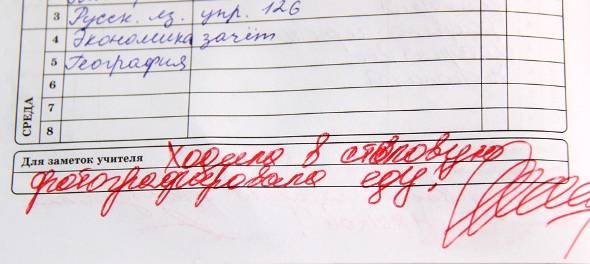 3 Русск. яз. упр. 126
4 Экономика зачёт
5 География
6
7
СРЕДА
8
Для заметок учителя Ходила в столовую
фотографировала еду!